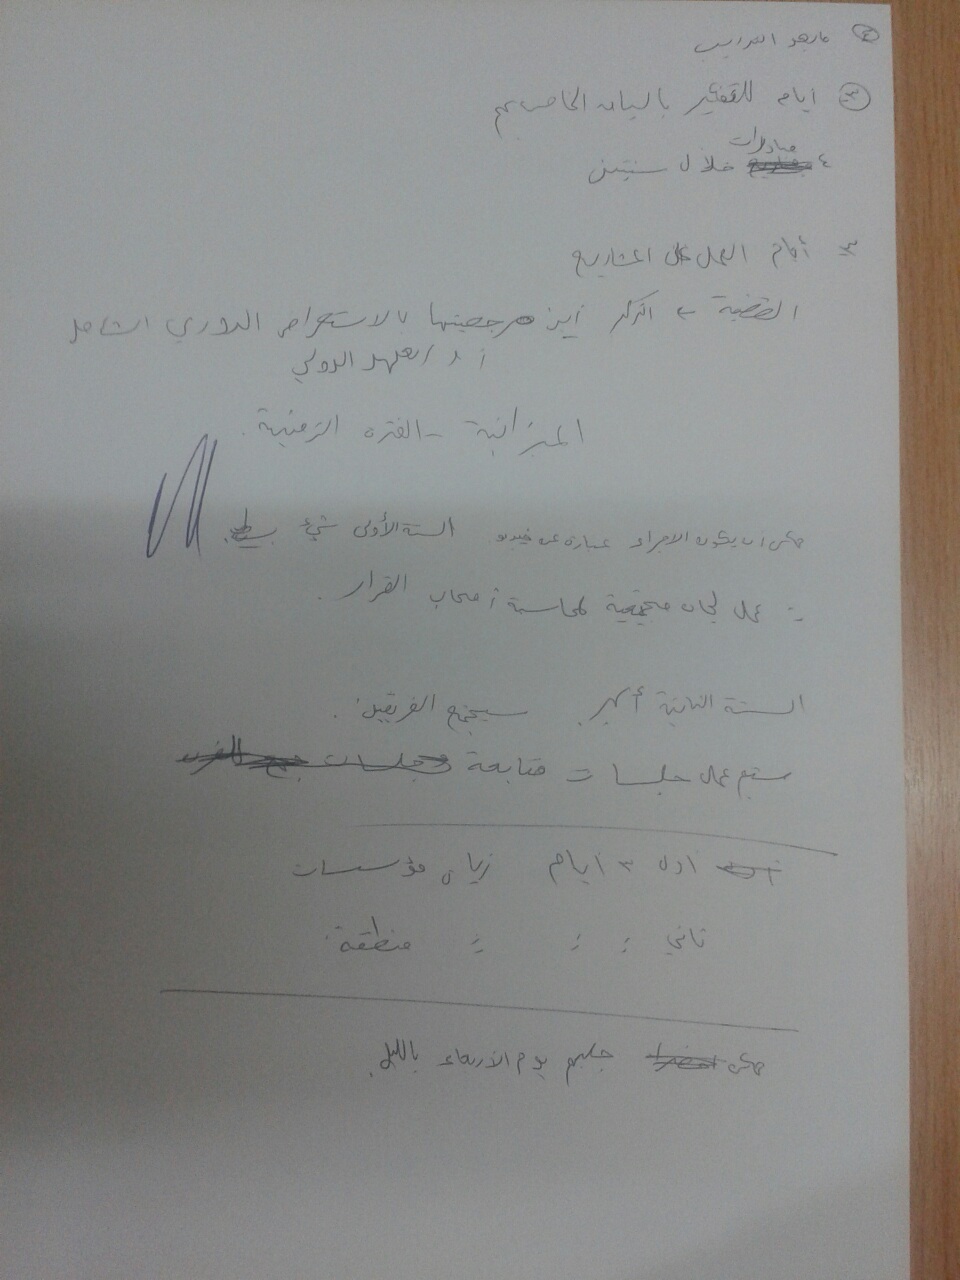 ② ما بعد التدريب
③ ايام للتفكير بالبيان الخاص بهم
مبادرات
٤ خلال سنتين
٣ أيام العمل على المشاريع
القضية ← اتذكر اين مرجعيتها بالاستعراض الدوري الشامل
أو العهد الدولي
الميزانية - الفترة الزمنية.
ممكن ان يكون الاجراء عبارة عن فيديو السنة الأولى شيء بسيط.
= عمل لجان مجتمعية لمحاسبة أصحاب القرار.
السنة الثانية أكبر. سيجتمع الفريقين.
سيتم عمل جلسات متابعة
اول ٣ ايام مؤسسات
ثاني = = = منطقة
ممكن جلبهم يوم الأربعاء بالليل.